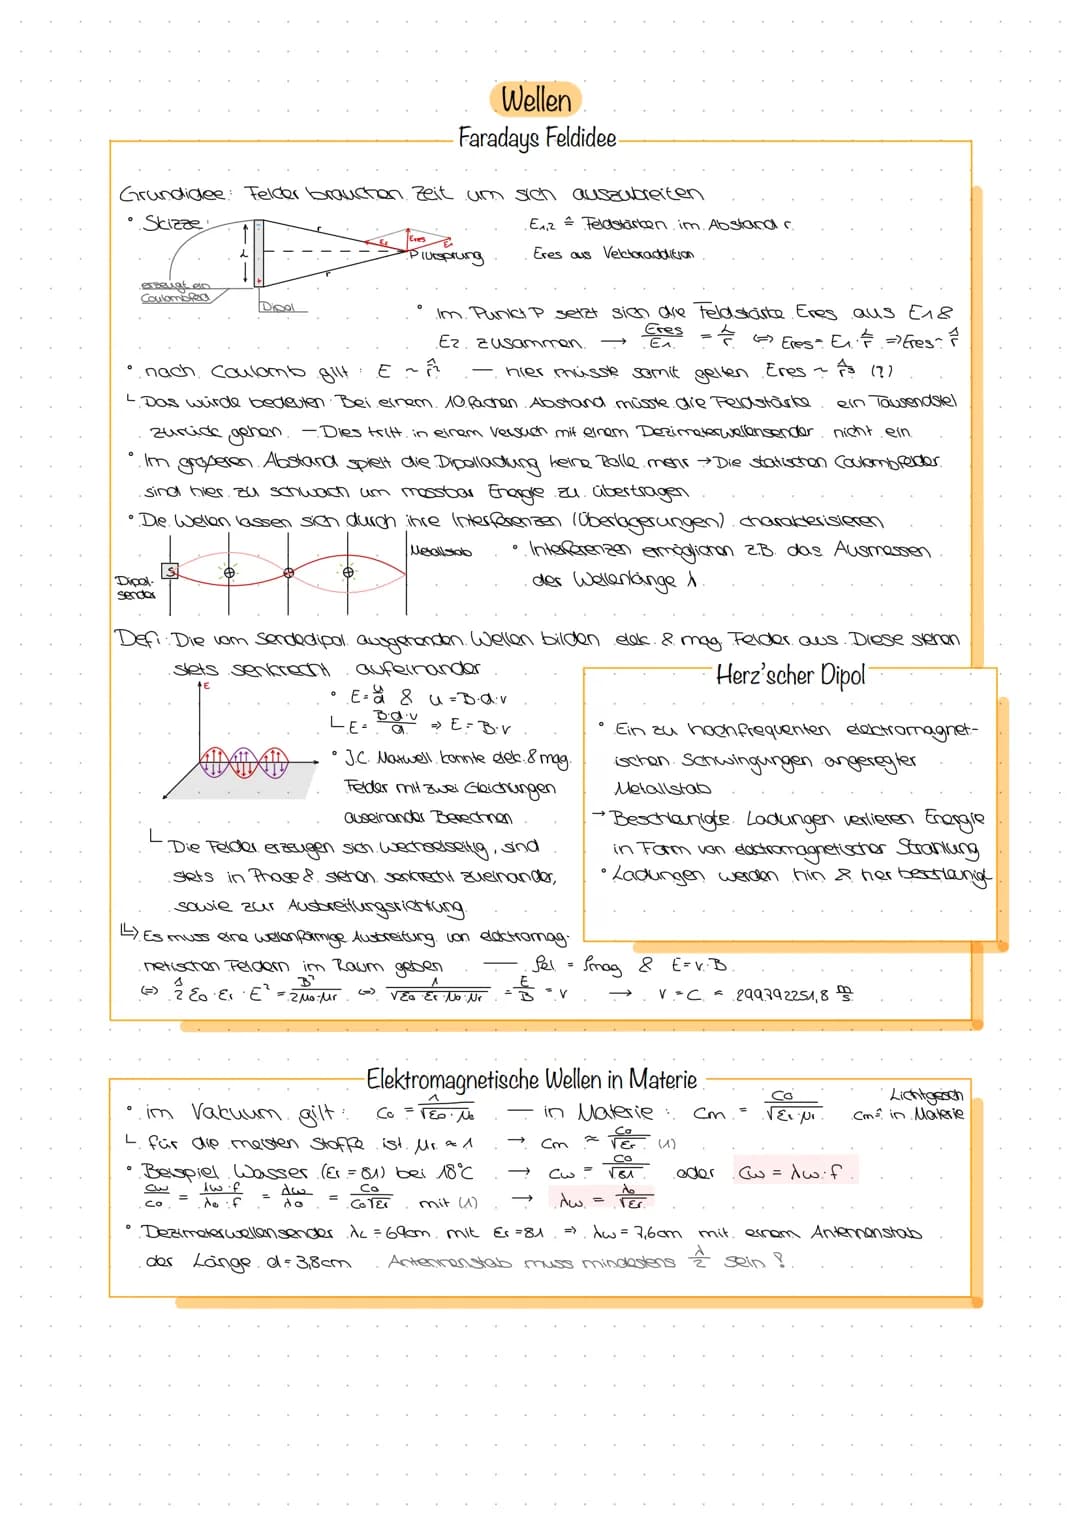 Wellen
Faradays Feldidee
Grundidee: Felder brauchen Zeit um sich auszubreiten
° Skizze:
E1,2 ≙ Feldstärken im Abstand r.
Eres aus Vektoraddition
r
E2
Eres
E1
P Ursprung
L
r
erzeugt ein
Coulombfeld
Dipol
° im Punkt P setzt sich die Feldstärke Eres aus E1 &
E2 zusammen. → Eres/E1 = L/r ⇔ Eres = E1 · L/r ⇒ Eres ~ 1/r
° nach Coulomb gilt: E ~ 1/r² — hier müsste somit gelten Eres ~ 1/r³ (?)
└ Das würde bedeuten: Bei einem 10 fachen Abstand müsste die Feldstärke ein Tausendstel
zurück gehen. — Dies tritt in einem Versuch mit einem Dezimeterwellensender nicht ein
° Im größeren Abstand spielt die Dipolladung keine Rolle mehr → Die statischen Coulombfelder
sind hier zu schwach um messbar Energie zu übertragen
° Die Wellen lassen sich durch ihre Interferenzen (Überlagerungen) charakterisieren
Metallstab
° Interferenzen ermöglichen z.B. das Ausmessen
der Wellenlänge λ
S
Dipol-
sender
Defi: Die vom Sendedipol ausgehenden Wellen bilden elek. & mag. Felder aus. Diese stehen
stets senkrecht aufeinander
E
° E = U/d & U = B·d·v
└ E = B·d·v/d ⇒ E = B·v
° J.C. Maxwell konnte elek. & mag.
Felder mit zwei Gleichungen
auseinander Berechnen
└ Die Felder erzeugen sich wechselseitig, sind
stets in Phase & stehen senkrecht zueinander,
sowie zur Ausbreitungsrichtung
Herz'scher Dipol
° Ein zu hochfrequenten elektromagnet-
ischen Schwingungen angeregter
Metallstab
→ Beschleunigte Ladungen verlieren Energie
in Form von elektromagnetischer Strahlung
° Ladungen werden hin & her beschleunigt
↳ Es muss eine wellenförmige Ausbreitung von elektromag-
netischen Feldern im Raum geben — ρel = ρmag & E = v·B
⇔ 1/2 ε0 · εr · E² = B²/2μ0·μr ⇔ 1/√ε0·εr·μ0·μr = E/B = v → v = c = 299792251,8 m/s
Elektromagnetische Wellen in Materie
° im Vakuum gilt: c0 = 1/√ε0·μ0 — in Materie: cm = c0/√εr·μr
Lichtgesch
cm≙ in Materie
└ für die meisten Stoffe ist μr ≈ 1 → cm ≈ c0/√εr (1)
° Beispiel Wasser (εr = 81) bei 18°C → cw = c0/√81 oder cw = λw·f
cw/c0 = λw·f/λ0·f = λw/λ0 = c0/c0√εr mit (1) → λw = λ0/√εr
° Dezimeterwellensender λL = 69cm mit εr = 81 ⇒ λw = 7,6cm mit einem Antennenstab
der Länge d = 3,8cm Antennenstab muss mindestens λ/2 sein?